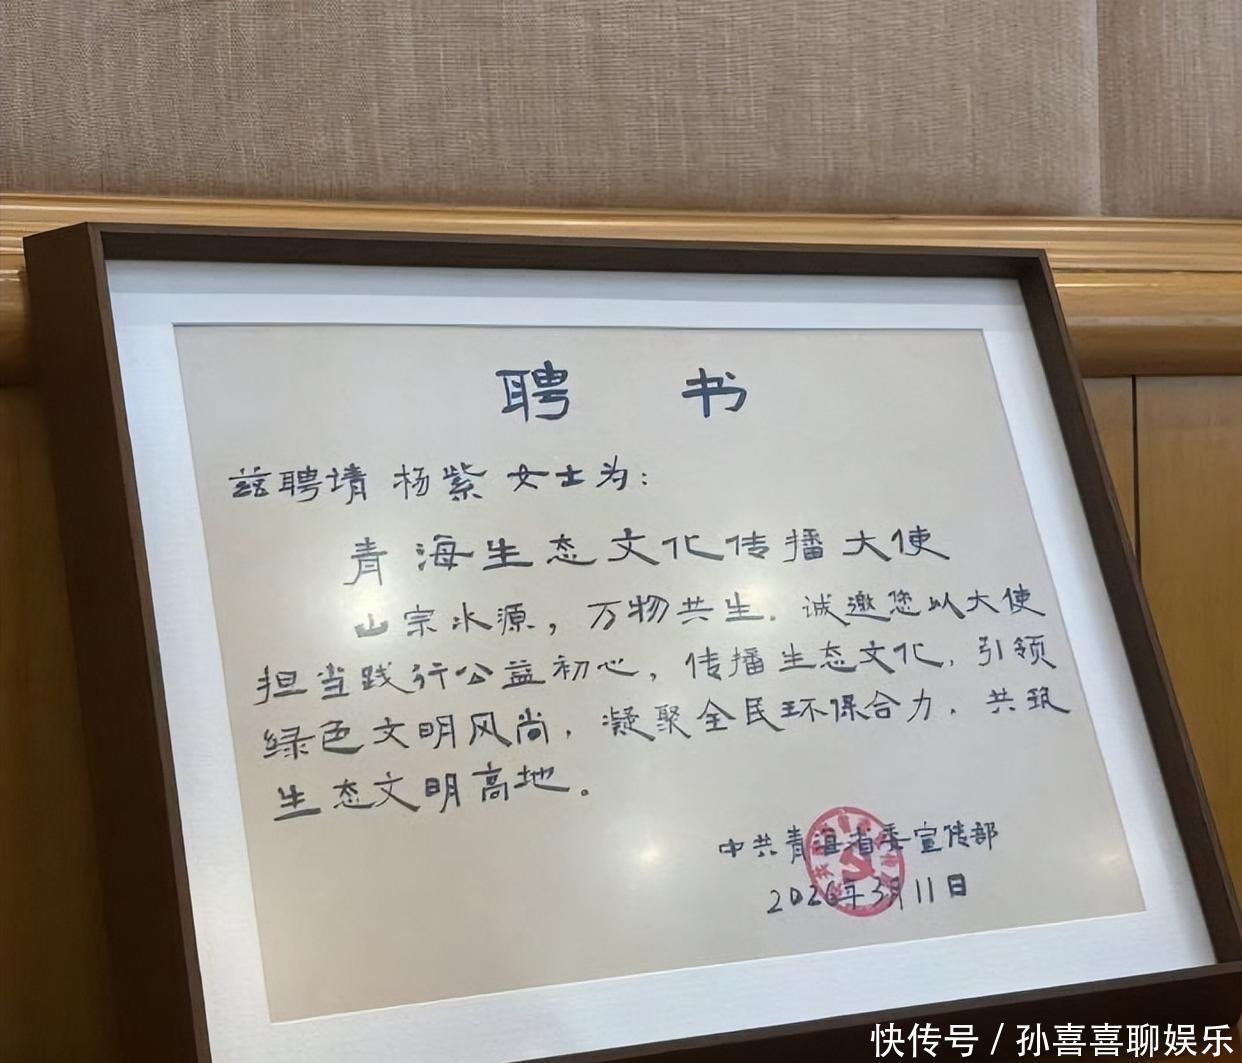 聘 书
兹聘请 杨紫 女士为：
青海生态文化传播大使
山宗水源，万物共生。诚邀您以大使
担当践行公益初心，传播生态文化，引领
绿色文明风尚，凝聚全民环保合力，共筑
生态文明高地。
中共青海省委宣传部
2026年3月11日
快传号 / 孙喜喜聊娱乐